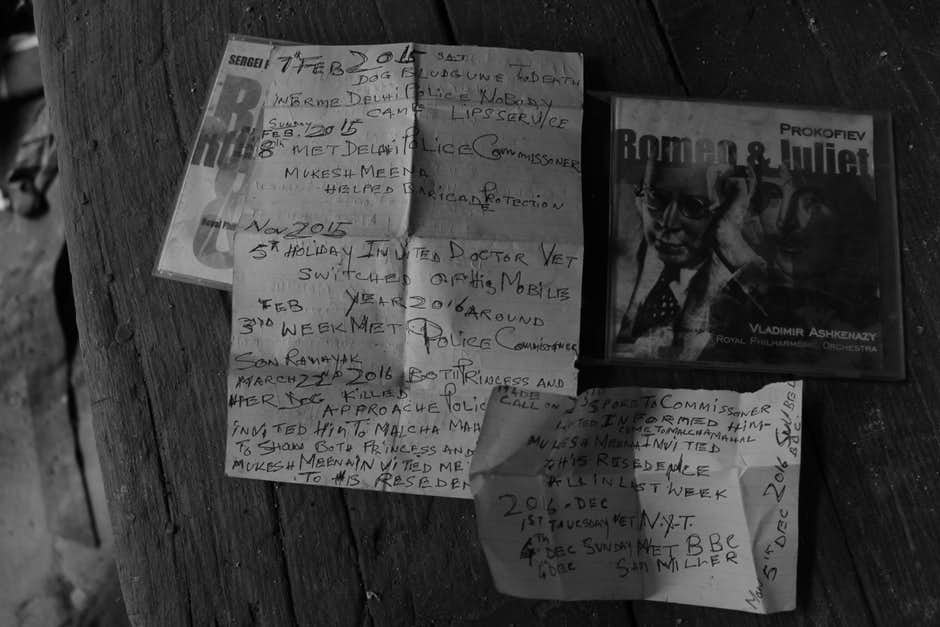 SERGEI
7TH FEB 2015 SAT.
DOG BLUDGUNE TO DEATH
INFORME DELHI POLICE NOBODY
CAME LIPS SERVICE
SUNDAY
FEB. 2015
8TH MET DELHI POLICE COMMISSIONER
MUKESH MEENA
HELPED BARICADE PROTECTION
NOV 2015
5TH HOLIDAY INVITED DOCTOR VET
SWITCHED OF HIS MOBILE
FEB YEAR 2016 AROUND
3RD WEEK MET POLICE COMMISSIONER
SON RAMAYAK
MARCH 22ND 2016 BOTH PRINCESS AND
HER DOG KILLED
APPROACHE POLIC
INVITED HIM TO MALCHA MAH
TO SHOW BOTH PRINCESS AND
MUKESH MEENA INVITED ME
TO HIS RESEDEN
PROKOFIEV
Romeo & Juliet
VLADIMIR ASHKENAZY
ROYAL PHILHARMONIC ORCHESTRA
MADE
CALL ON SPOKE TO COMMISSIONER
INFORMED HIM-
COME TO MALCHA MAHAL
MUKESH MEENA INVITED
HIS RESEDENCE
ALL IN LAST WEEK
2016-DEC
1ST THUESDAY MET N.Y.T.
4TH DEC SUNDAY MET BBC
DEC SAM MILLER
MON 5TH DEC 2016
BBC